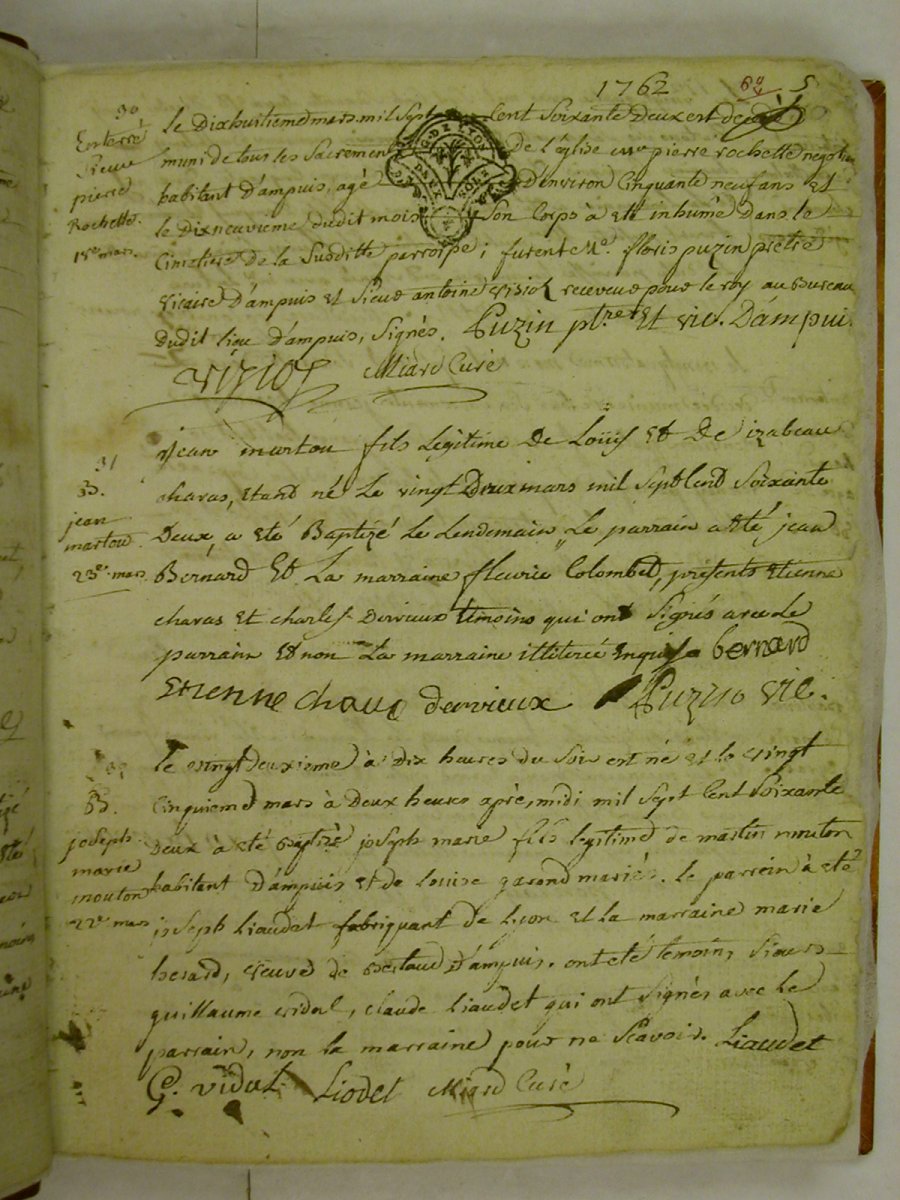 1762
5
30
Enterré
Sieur
pierre
Rochette
18e mars
le Dixhuitieme mars mil Sept Cent Soixante Deux est decedé
muni de tous les Sacremens de l'église pierre rochette negotian
habitant D'ampuis, agé D'environ Cinquante neuf ans et
le Dixneuvieme dudit mois Son Corps à eté inhumé dans le
Cimetiere de la Susditte parroisse; furent Mre floris puzin prêtre
vicaire D'ampuis et Sieur antoine viziol receveur pour le roy au Bureau
dudit lieu d'ampuis, Signés. Puzin ptre et vic. D'ampui
Miard Curé
G. DE LYON
31
B.
jean
martou
23e mars
jean martou fils Légitime De Loüis Et De izabeau
charas, Etand né Le vingt Deux mars mil Septcend Soixante
Deux, a eté Baptizé Le Lendemain Le parrain a eté jean
Bernard Et La marraine fleurie Colombet, présents Etienne
charas Et charles Dervieux témoins qui ont Signés avec Le
parrain Et non La marraine illiterée Enquise bernard
Etienne dervieux Puzin vic.
32
B.
joseph
marie
mouton
22e mars
le vingt deuxieme à dix heures du Soir est né et le vingt
Cinquieme mars à Deux heures après midi mil Sept Cent Soixante
Deux à eté Baptizé joseph marie fils legitime de martin mouton
habitant D'ampuis et de louise garond mariés. le parrein à eté
joseph liaudet fabriquant de lyon et la marraine marie
berard, veuve de bertaud, d'ampuis. ont eté temoins, Sieurs
guillaume vidal, claude liaudet qui ont Signés avec le
parrain, non la marraine pour ne Scavoir. Liaudet
G. vidal Liodet Miard Curé